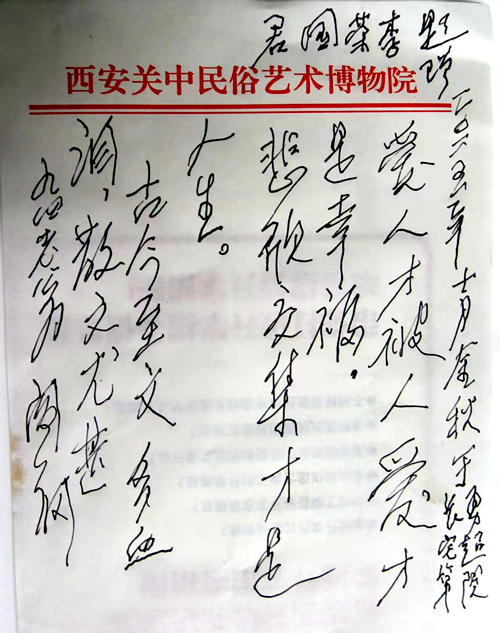 西安关中民俗艺术博物院
题赠
李荣国君
二〇二五年十月金秋于勇超院
长宅第
爱人才被人爱才
是幸福。
悲欣交集才是
人生。
古今至文多血
泪，散文尤甚
九四老翁 阎纲